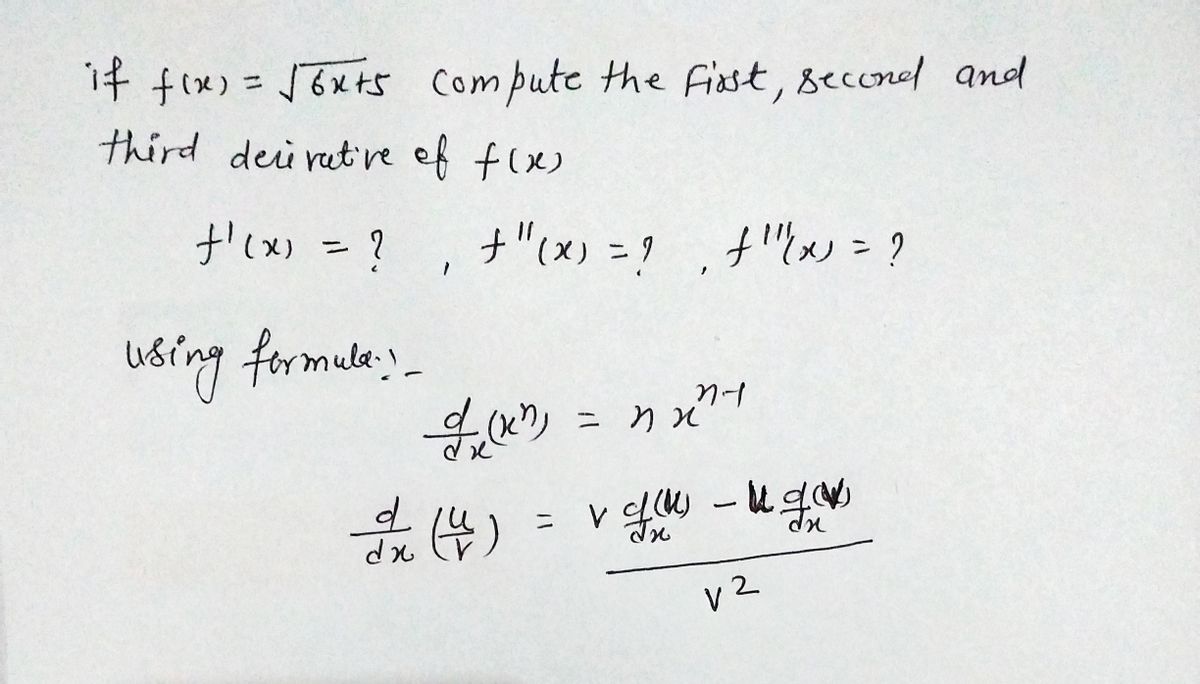 if f(x) = √6x+5 compute the first, second and
third derivative of f(x)
f'(x) = ? , f''(x) = ? , f'''(x) = ?
using formula:-
d/dx (xⁿ) = n xⁿ⁻¹
d/dx (u/v) = v d(u)/dx - u d(v)/dx / v²